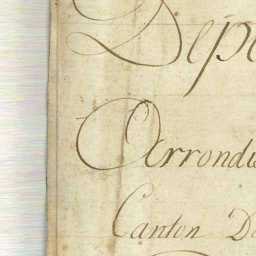 Dépa
Arrondi
Canton De